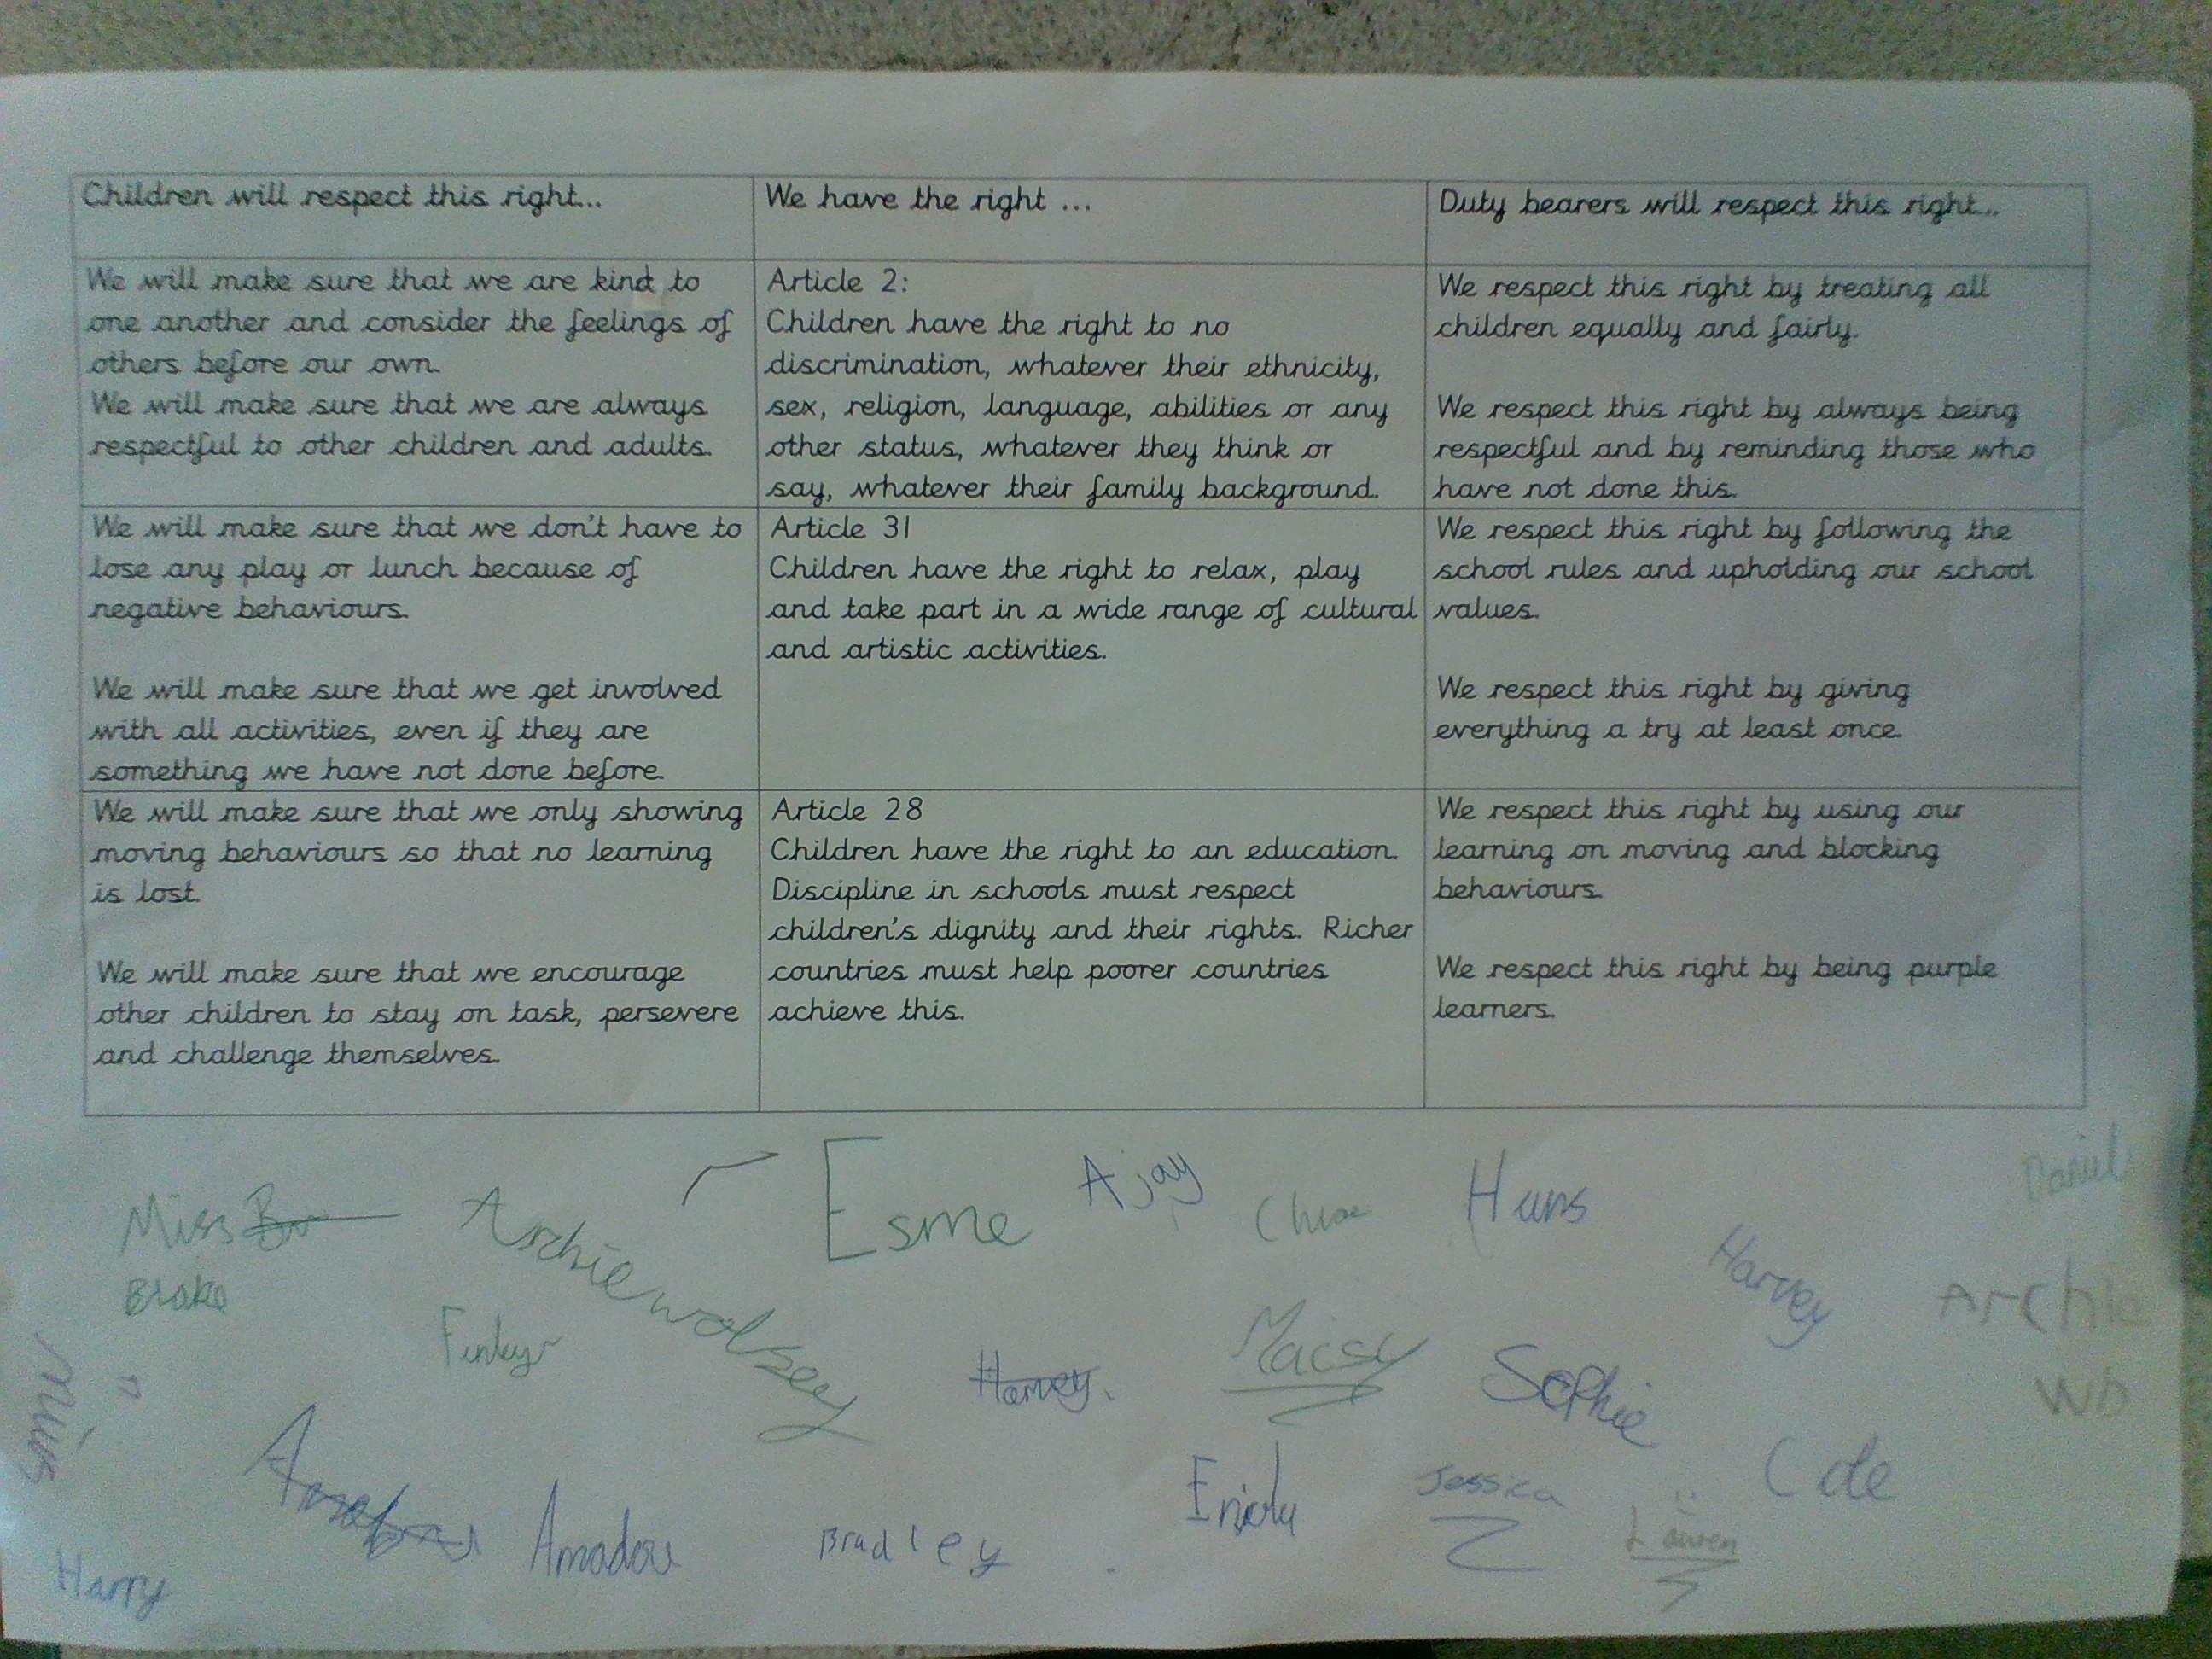 Children will respect this right...
We have the right ...
Duty bearers will respect this right...
We will make sure that we are kind to
one another and consider the feelings of
others before our own.
We will make sure that we are always
respectful to other children and adults.
Article 2:
Children have the right to no
discrimination, whatever their ethnicity,
sex, religion, language, abilities or any
other status, whatever they think or
say, whatever their family background.
We respect this right by treating all
children equally and fairly.
We respect this right by always being
respectful and by reminding those who
have not done this.
We will make sure that we don't have to
lose any play or lunch because of
negative behaviours.
We will make sure that we get involved
with all activities, even if they are
something we have not done before.
Article 31
Children have the right to relax, play
and take part in a wide range of cultural
and artistic activities.
We respect this right by following the
school rules and upholding our school
values.
We respect this right by giving
everything a try at least once.
We will make sure that we only showing
moving behaviours so that no learning
is lost.
We will make sure that we encourage
other children to stay on task, persevere
and challenge themselves.
Article 28
Children have the right to an education.
Discipline in schools must respect
children's dignity and their rights. Richer
countries must help poorer countries
achieve this.
We respect this right by using our
learning on moving and blocking
behaviours.
We respect this right by being purple
learners.
Miss
Blake
Archie wolsey
Esme
Ajay
Chloe
Daniel
Harvey
Archie
WD
Finlay
Harvey.
Maisy
Sophie
Cole
Jessica
Lauren
Amadou
Bradley
Harry